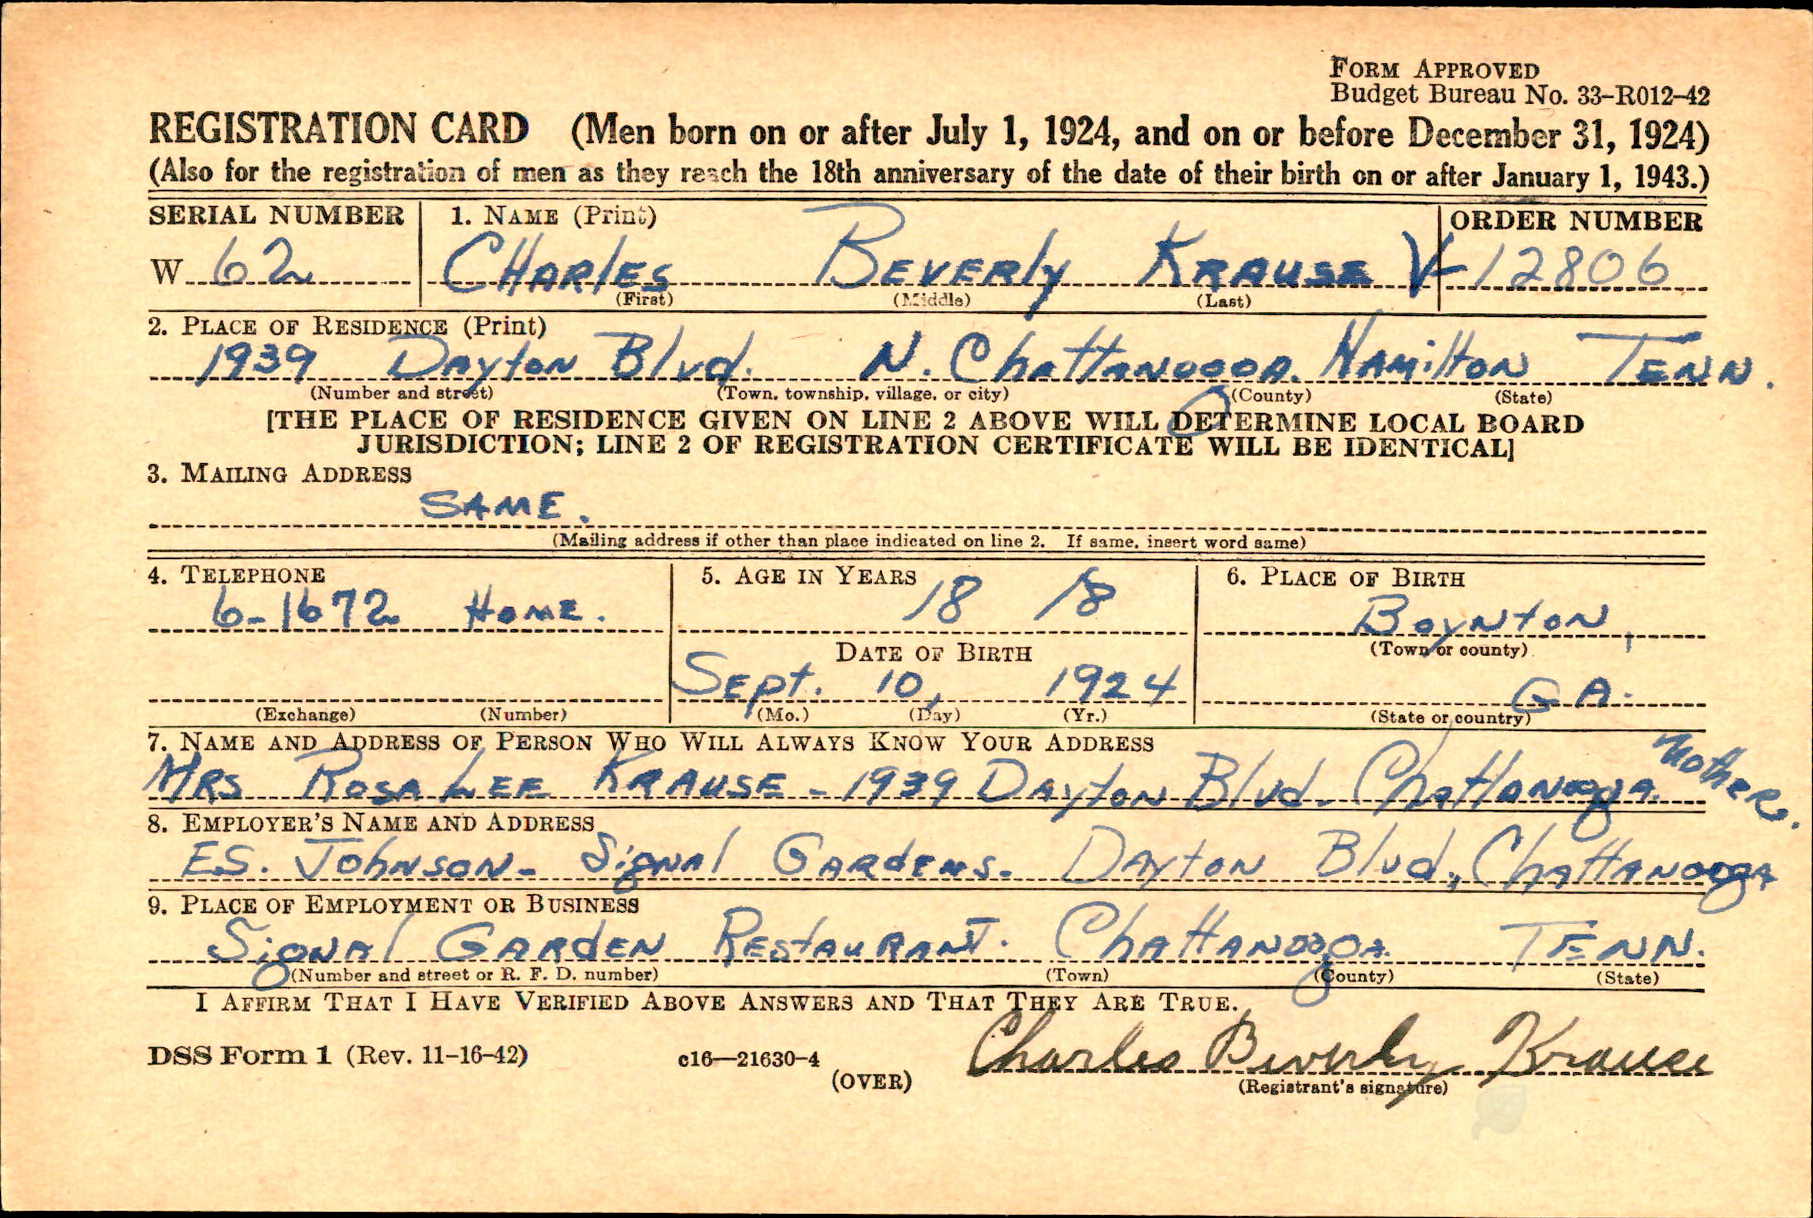 FORM APPROVED
Budget Bureau No. 33-R012-42
REGISTRATION CARD (Men born on or after July 1, 1924, and on or before December 31, 1924)
(Also for the registration of men as they reach the 18th anniversary of the date of their birth on or after January 1, 1943.)
SERIAL NUMBER 1. NAME (Print) ORDER NUMBER
W 62 CHARlES BEVERly KRAUSE V 12806
(First) (Middle) (Last)
2. PLACE OF RESIDENCE (Print)
1939 Dayton Blvd. N. Chattanooga. Hamilton TENN.
(Number and street) (Town, township, village, or city) (County) (State)
[THE PLACE OF RESIDENCE GIVEN ON LINE 2 ABOVE WILL DETERMINE LOCAL BOARD
JURISDICTION; LINE 2 OF REGISTRATION CERTIFICATE WILL BE IDENTICAL]
3. MAILING ADDRESS
SAME.
(Mailing address if other than place indicated on line 2. If same, insert word same)
4. TELEPHONE 5. AGE IN YEARS 6. PLACE OF BIRTH
6-1672 HOME. 18 18 Boynton,
DATE OF BIRTH (Town or county)
Sept. 10, 1924 GA.
(Exchange) (Number) (Mo.) (Day) (Yr.) (State or country)
7. NAME AND ADDRESS OF PERSON WHO WILL ALWAYS KNOW YOUR ADDRESS
MRS ROSA LEE KRAUSE - 1939 Dayton Blvd. Chattanooga. Mother.
8. EMPLOYER'S NAME AND ADDRESS
E.S. Johnson - Signal Gardens. Dayton Blvd., Chattanooga
9. PLACE OF EMPLOYMENT OR BUSINESS
Signal GARDEN RESTAURANT. Chattanooga. TENN.
(Number and street or R. F. D. number) (Town) (County) (State)
I AFFIRM THAT I HAVE VERIFIED ABOVE ANSWERS AND THAT THEY ARE TRUE.
DSS Form 1 (Rev. 11-16-42) c16—21630-4 Charles Beverly Krause
(OVER) (Registrant's signature)